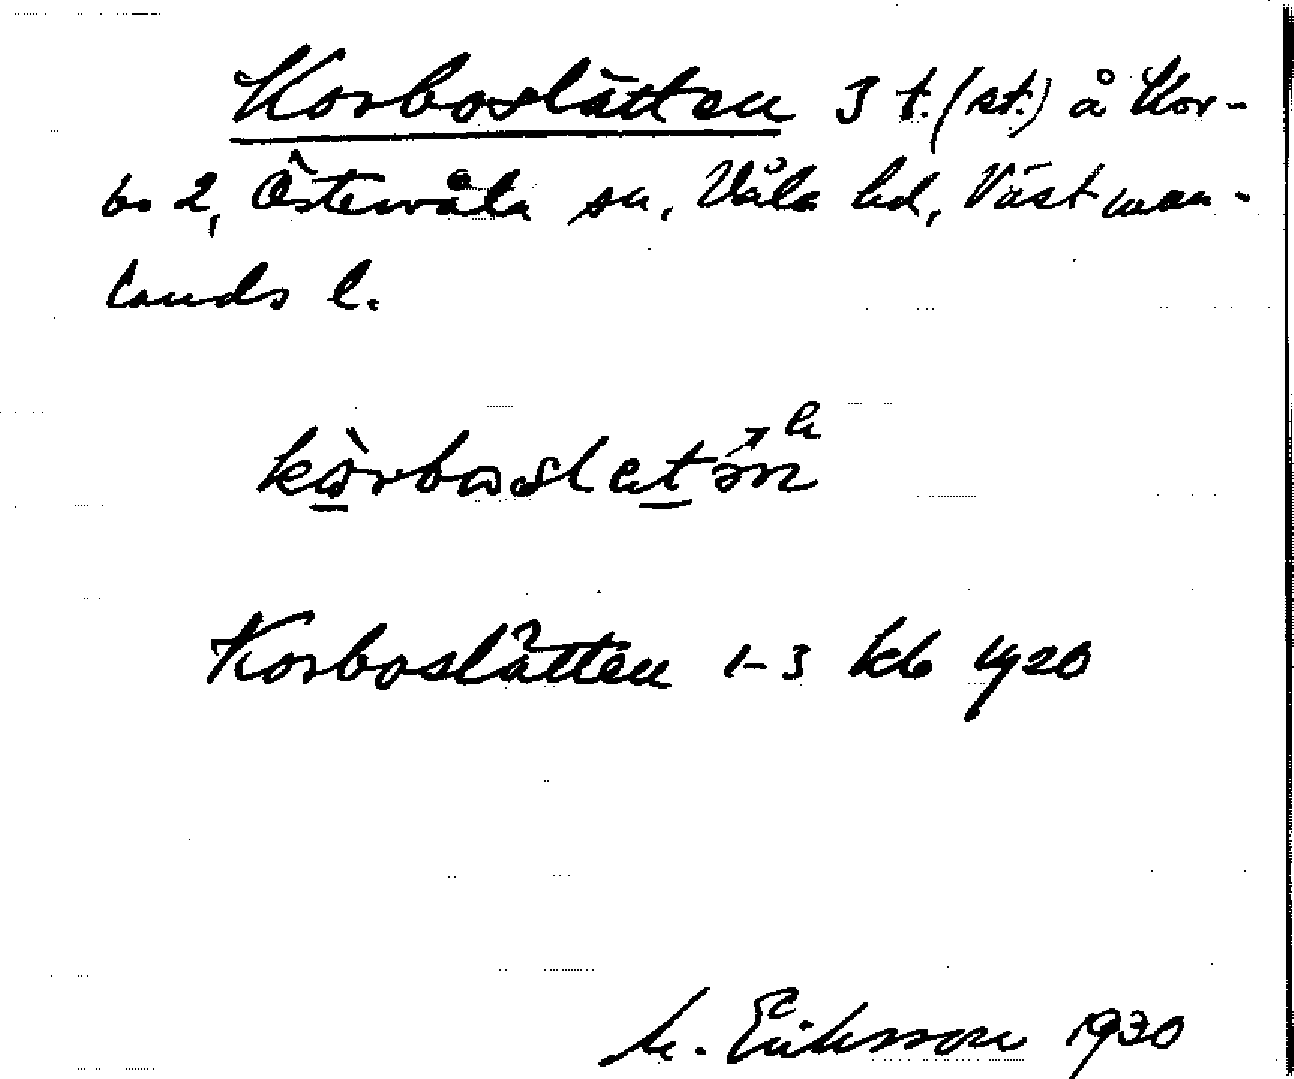 Korboslätten 3 t. (st.) å Kor-
bo 2, Östervåla sn, Våla hd, Västman-
lands l.
Korboslåtten 1-3 kb 1920
M. Eriksson 1930